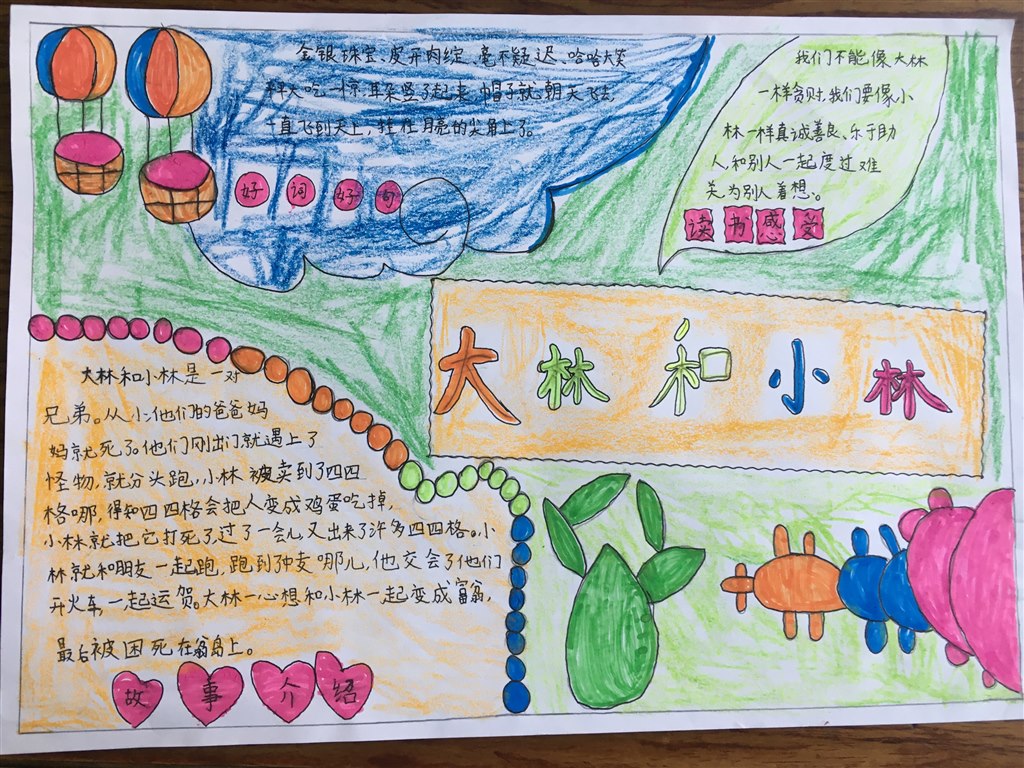 金银珠宝、皮开肉绽、毫不疑迟、哈哈大笑
大吃一惊 耳朵竖了起来 帽子就朝天飞去,
一直飞到天上,挂在月亮的尖角上了。
好词好句
我们不能像大林
一样贪财,我们要像小
林一样真诚善良、乐于助
人,和别人一起度过难
关,为别人着想。
读书感受
大林和小林
大林和小林是一对
兄弟。从小他们的爸爸妈
妈就死了。他们刚出门就遇上了
怪物,就分头跑,小林被卖到了四四
格哪,得知四四格会把人变成鸡蛋吃掉,
小林就把它打死了,过了一会儿又出来了许多四四格。小
林就和朋友一起跑,跑到了种麦哪儿,他交会了他们
开火车,一起运贺。大林一心想和小林一起变成富翁,
最后被困死在翁岛上。
故事介绍